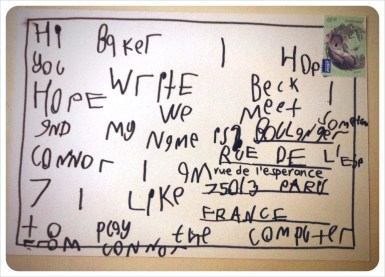 Hi Baker I Hope
you WRITE Beck I
HOPE We Meet Someten
and My Nome is Boulanger
RUE DE L'Esp
CONNOR I am rue de l'esperance
75013 PARIS
7 I LIKE
FRANCE
to play the computer
FROM CONNOR